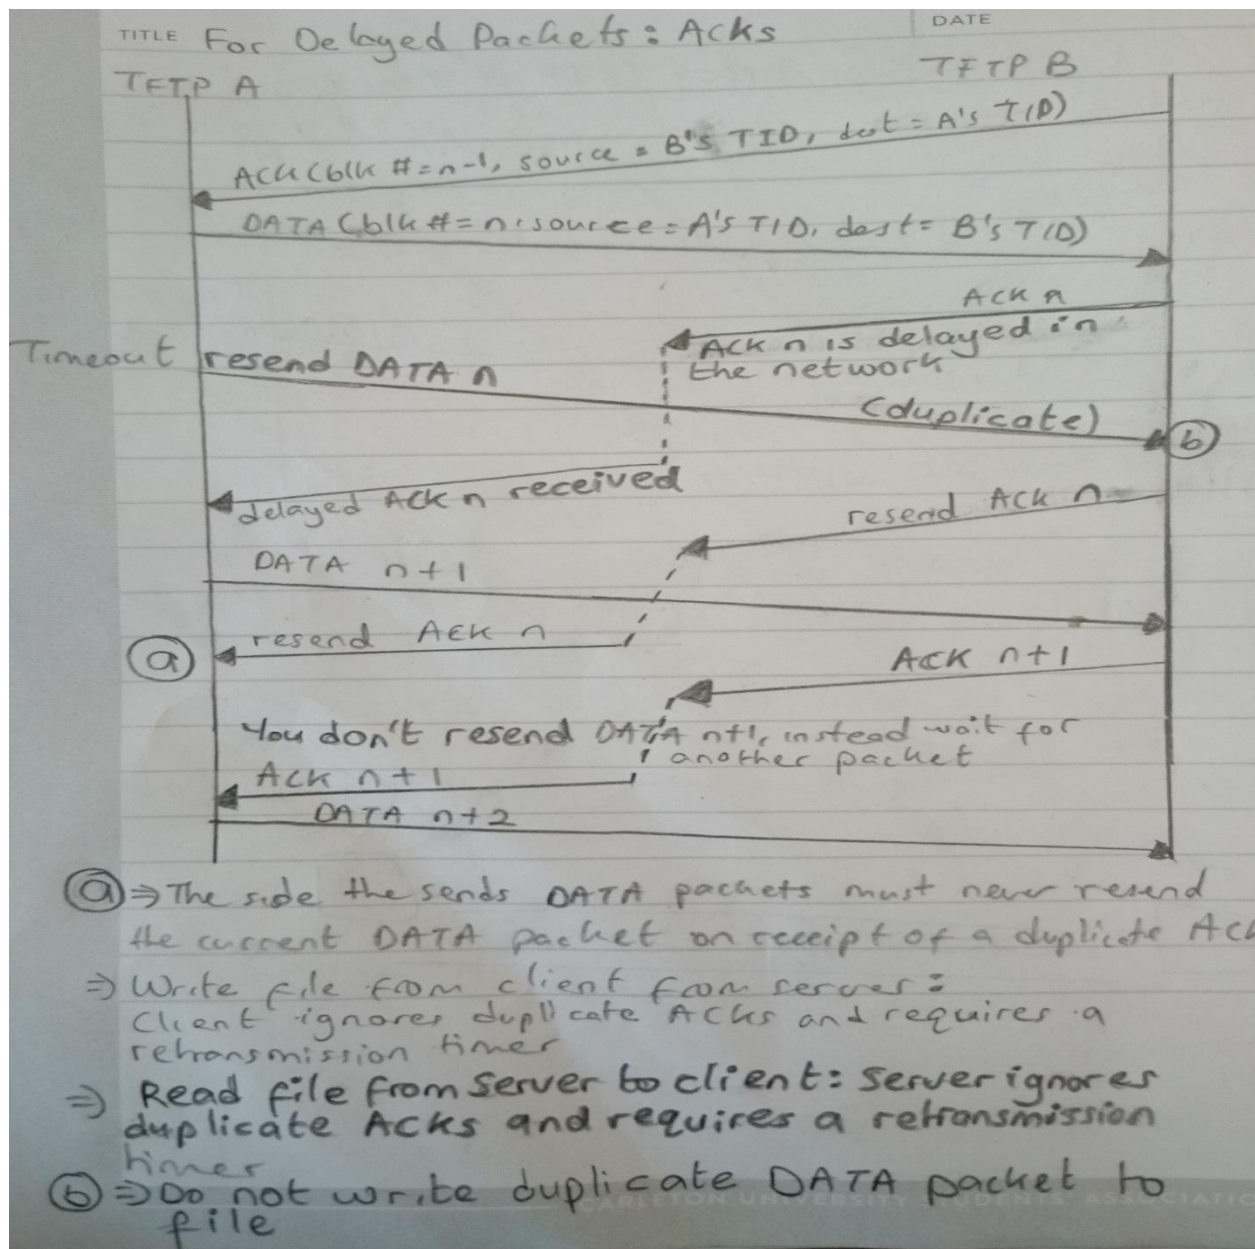 TITLE For Delayed Packets: Acks
DATE
TFTP A
TFTP B
ACK (blk #=n-1, source = B's TID, dest = A's TID)
DATA (blk #=n, source = A's TID, dest = B's TID)
ACK n
ACK n is delayed in
the network
Timeout resend DATA n
(duplicate)
b
delayed ACK n received
resend ACK n
DATA n+1
resend ACK n
a
ACK n+1
You don't resend DATA n+1, instead wait for
another packet
ACK n+1
DATA n+2
a ⇒ The side the sends DATA packets must never resend
the current DATA packet on receipt of a duplicate Ack
⇒ Write file from client from server:
Client ignores duplicate ACKs and requires a
retransmission timer
⇒ Read file from server to client: Server ignores
duplicate ACKs and requires a retransmission
timer
b ⇒ Do not write duplicate DATA packet to
CARLETON UNIVERSITY STUDENTS' ASSOCIATIO
file